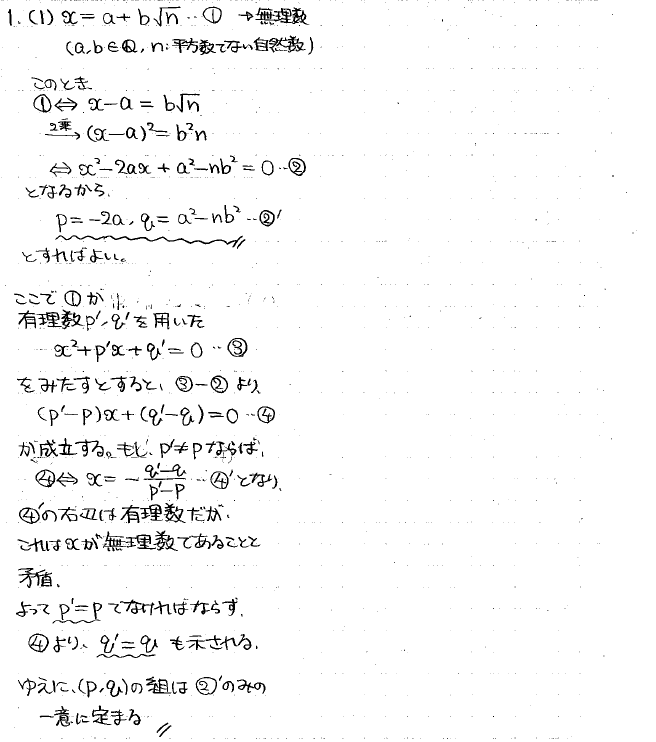 1. (1) x = a + b√n …① → 無理数
(a, b ∈ Q, n: 平方数でない自然数)
このとき
① ⇔ x − a = b√n
2乗→ (x − a)² = b²n
⇔ x² − 2ax + a² − nb² = 0 …②
となるから、
p = −2a, q = a² − nb² …②'
とすればよい。
ここで ①が
有理数p', q'を用いた
x² + p'x + q' = 0 …③
をみたすとすると、③−②より、
(p' − p)x + (q' − q) = 0 …④
が成立する。もし、p' ≠ p ならば、
④ ⇔ x = − (q' − q)/(p' − p) …④' となり、
④'の右辺は有理数だが、
これはxが無理数であることと
矛盾、
よって p' = p でなければならず、
④より、q' = q も示される。
ゆえに、(p, q)の組は②'のみの
一意に定まる